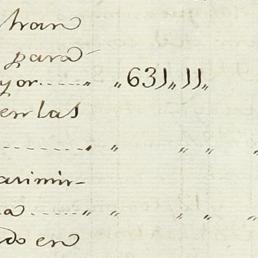 han
para
yor..... „ „ 631 „ 11 „
en las
........ „ „ „ „ „
asimis-
a ..... „ „ „ „
do en